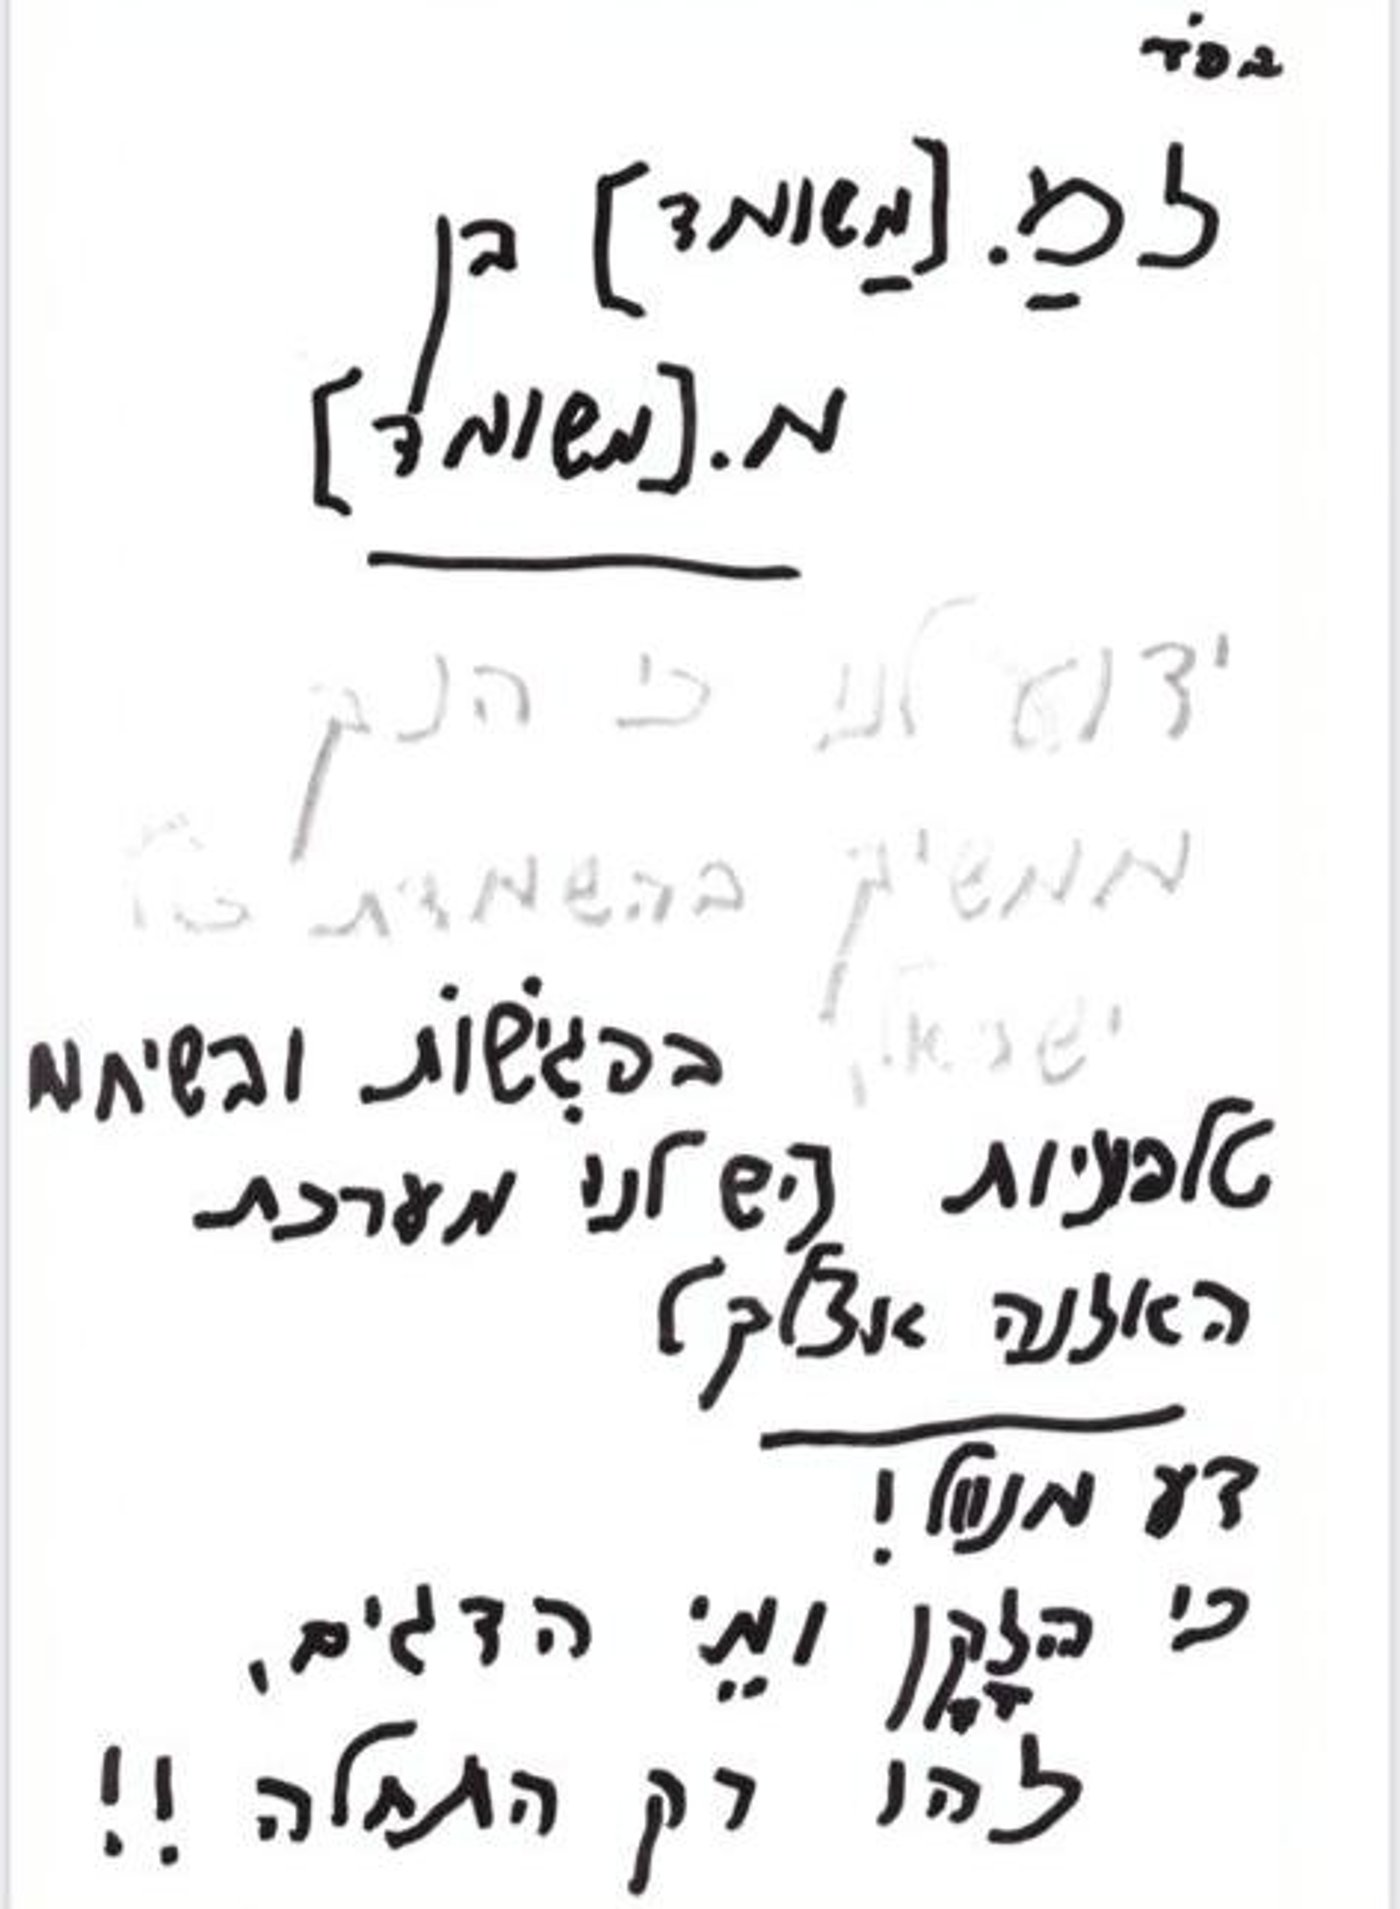 בסד
לכ מ.[משומד] בן
מ.[משומד]
ידוע לנו כי הנך
ממשיך בהשמדת
ישראל,
בפגישות ובשיחמ
טלפוניות יש לנו מערכת
האזנה אצלך
דע מנוול!
כי הזקן ומי הדגים,
זהו רק התחלה !!